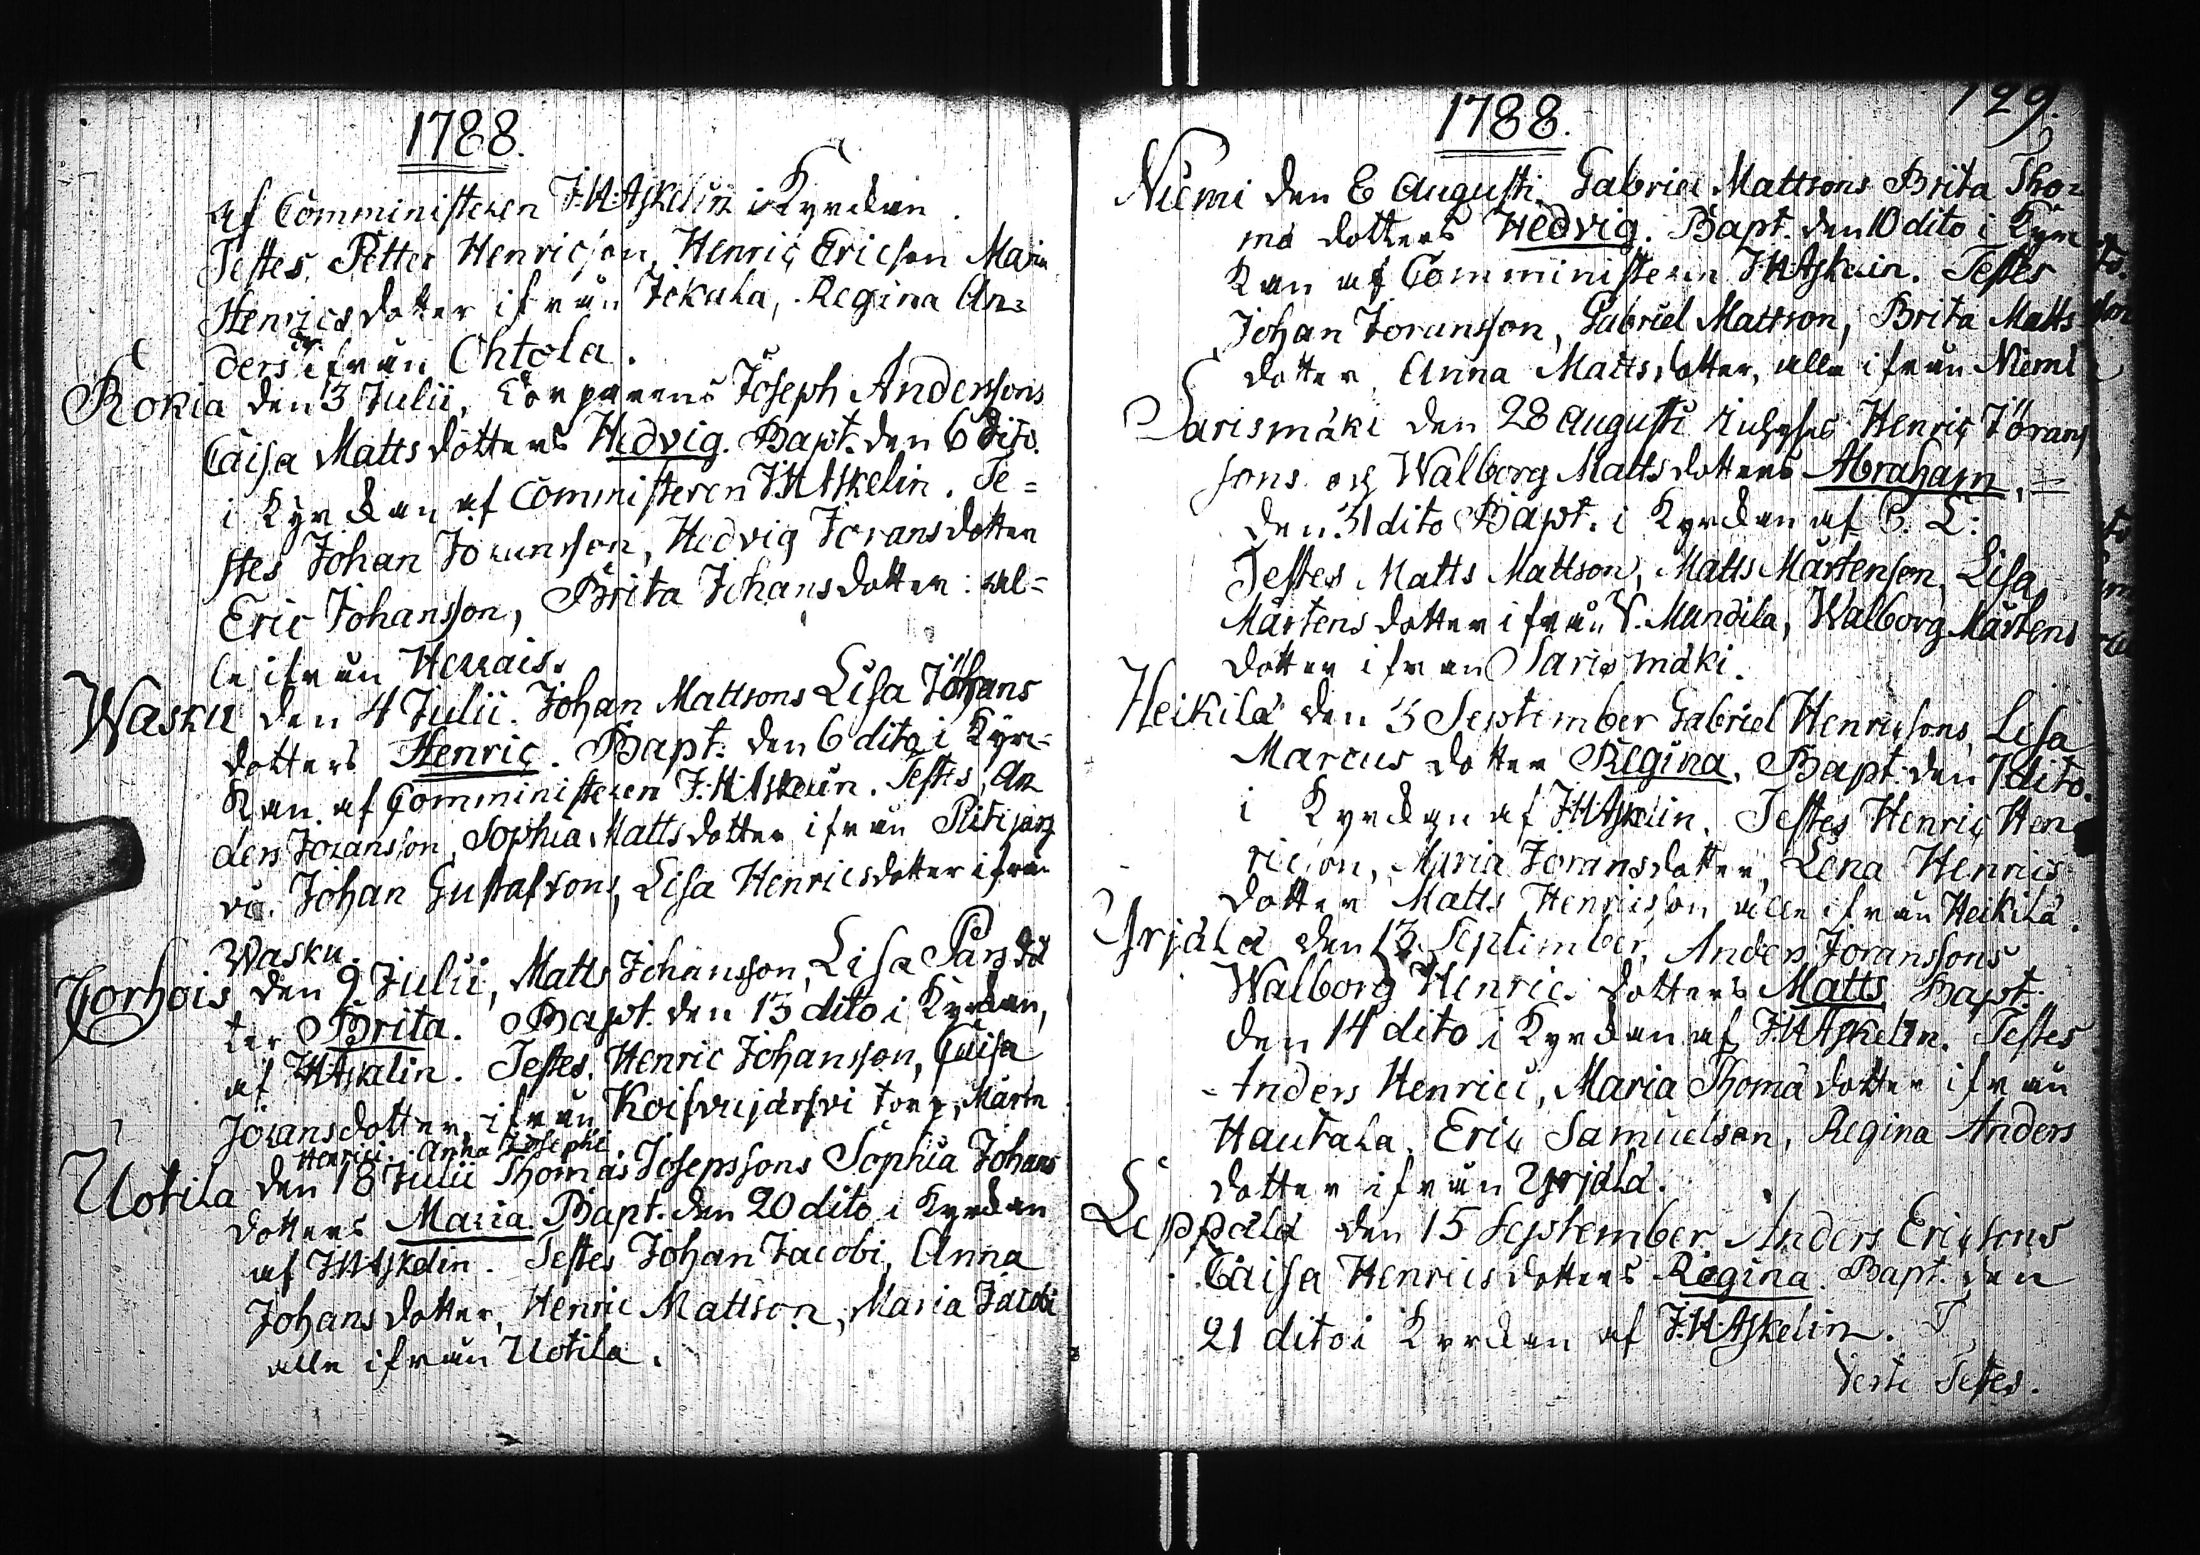 1788.
af Comministeren J:H:Askelin i Kyrckan.
Testes, Petter Henricson, Henric Ericson Maria
Henricsdotter ifrån Jokala, Regina An=
ders dr ifrån Ohtola.
Rokia den 3 Julii, Corporens Joseph Anderssons
Caisa Mattsdotters Hedvig. Bapt. den 6 dito.
i Kyrckan af Comministeren J.H.Askelin. Te=
stes Johan Joransson, Hedvig Joransdotter
Eric Johansson, Brita Johansdotter: al=
le ifrån Herrais.
Wasku den 4 Julii. Johan Mattsons Lisa Johans
dotters Henric. Bapt. den 6 dito i Kyrc=
kan af Comministeren J:H.Askelin. Testes, An
ders Joransson, Sophia Mattsdotter ifrån
Johan Gustafsons, Lisa Henricsdotter ifrån
Wasku.
Torhois den 9 Julii, Matts Johansson, Lisa Pärsdå
ter Brita. Bapt. den 13 dito i Kyrckan,
af HAskelin. Testes, Henric Johansson, Caisa
Joransdotter, ifrån Koisvujärfvi torp, Martn
Henrici. Anna Josephi
Uotila den 18 Julii Thomas Josepssons Sophia Johans
dotters Maria. Bapt. den 20 dito i Kyrckan
af J.H.Askelin. Testes Johan Jacobi, Anna
Johansdotter, Henric Mattson, Maria Jacobi
alle ifrån Uotila.
1788. 129.
Niemi den 6 Augusti. Gabriel Mattsons Brita Tho=
mæ dotters Hedvig. Bapt. den 10 dito i Kyrc
kan af Comministeren J.H.Askelin. Testes
Johan Joransson, Gabriel Mattson, Brita Matts
dotter, Anna Mattsdotter, alle ifrån Niemi
Sarismäki den 28 Augusti Henric Jörans
sons och Walborg Mattsdotters Abraham.
den 31 dito Bapt. i Kyrckan af
Testes Matts Mattson, Matts Mårtenson, Lisa
Mårtensdotter ifrån V. Mundila, Walborg Mårtens
dotter ifrån Sarismäki.
Heikilä den 3 September Gabriel Henricsons, Lisa
Marcus dotter Regina. Bapt. den 7 dito.
i Kyrckan af J.H.Askelin. Testes Henric Hen
ricson, Maria Joransdotter, Lena Henrics
dotter Matts Henricson alle ifrån Heikilä.
Yrjälä den 13 September, Anders Joranssons
Walborg Henrics dotters Matts Bapt.
den 14 dito i Kyrckan af J.H.Askelin. Testes
Anders Henrici, Maria Thomädotter ifrån
Hautala. Eric Samuelson, Regina Anders
dotter ifrån Yrjälä.
Leppälä den 15 September Anders Ericsons
Caisa Henricsdotters Regina. Bapt. den
21 dito i Kyrckan af J.H.Askelin. T
Verte Testes.